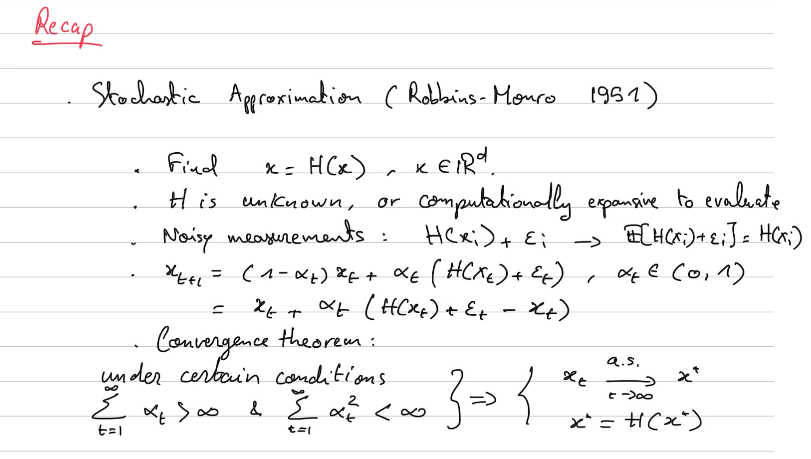 Recap
. Stochastic Approximation (Robbins-Monro 1951)
. Find x = H(x), x ∈ ℝ^d.
. H is unknown, or computationally expansive to evaluate
. Noisy measurements : H(x_i) + ε_i → 𝔼[H(x_i)+ε_i] = H(x_i)
. x_{t+1} = (1-α_t) x_t + α_t (H(x_t) + ε_t), α_t ∈ (0,1)
= x_t + α_t (H(x_t) + ε_t - x_t)
. Convergence theorem :
under certain conditions
∑_{t=1}^∞ α_t > ∞ & ∑_{t=1}^∞ α_t^2 < ∞ } => { x_t →^{a.s.}_{t→∞} x^*
x^* = H(x^*)